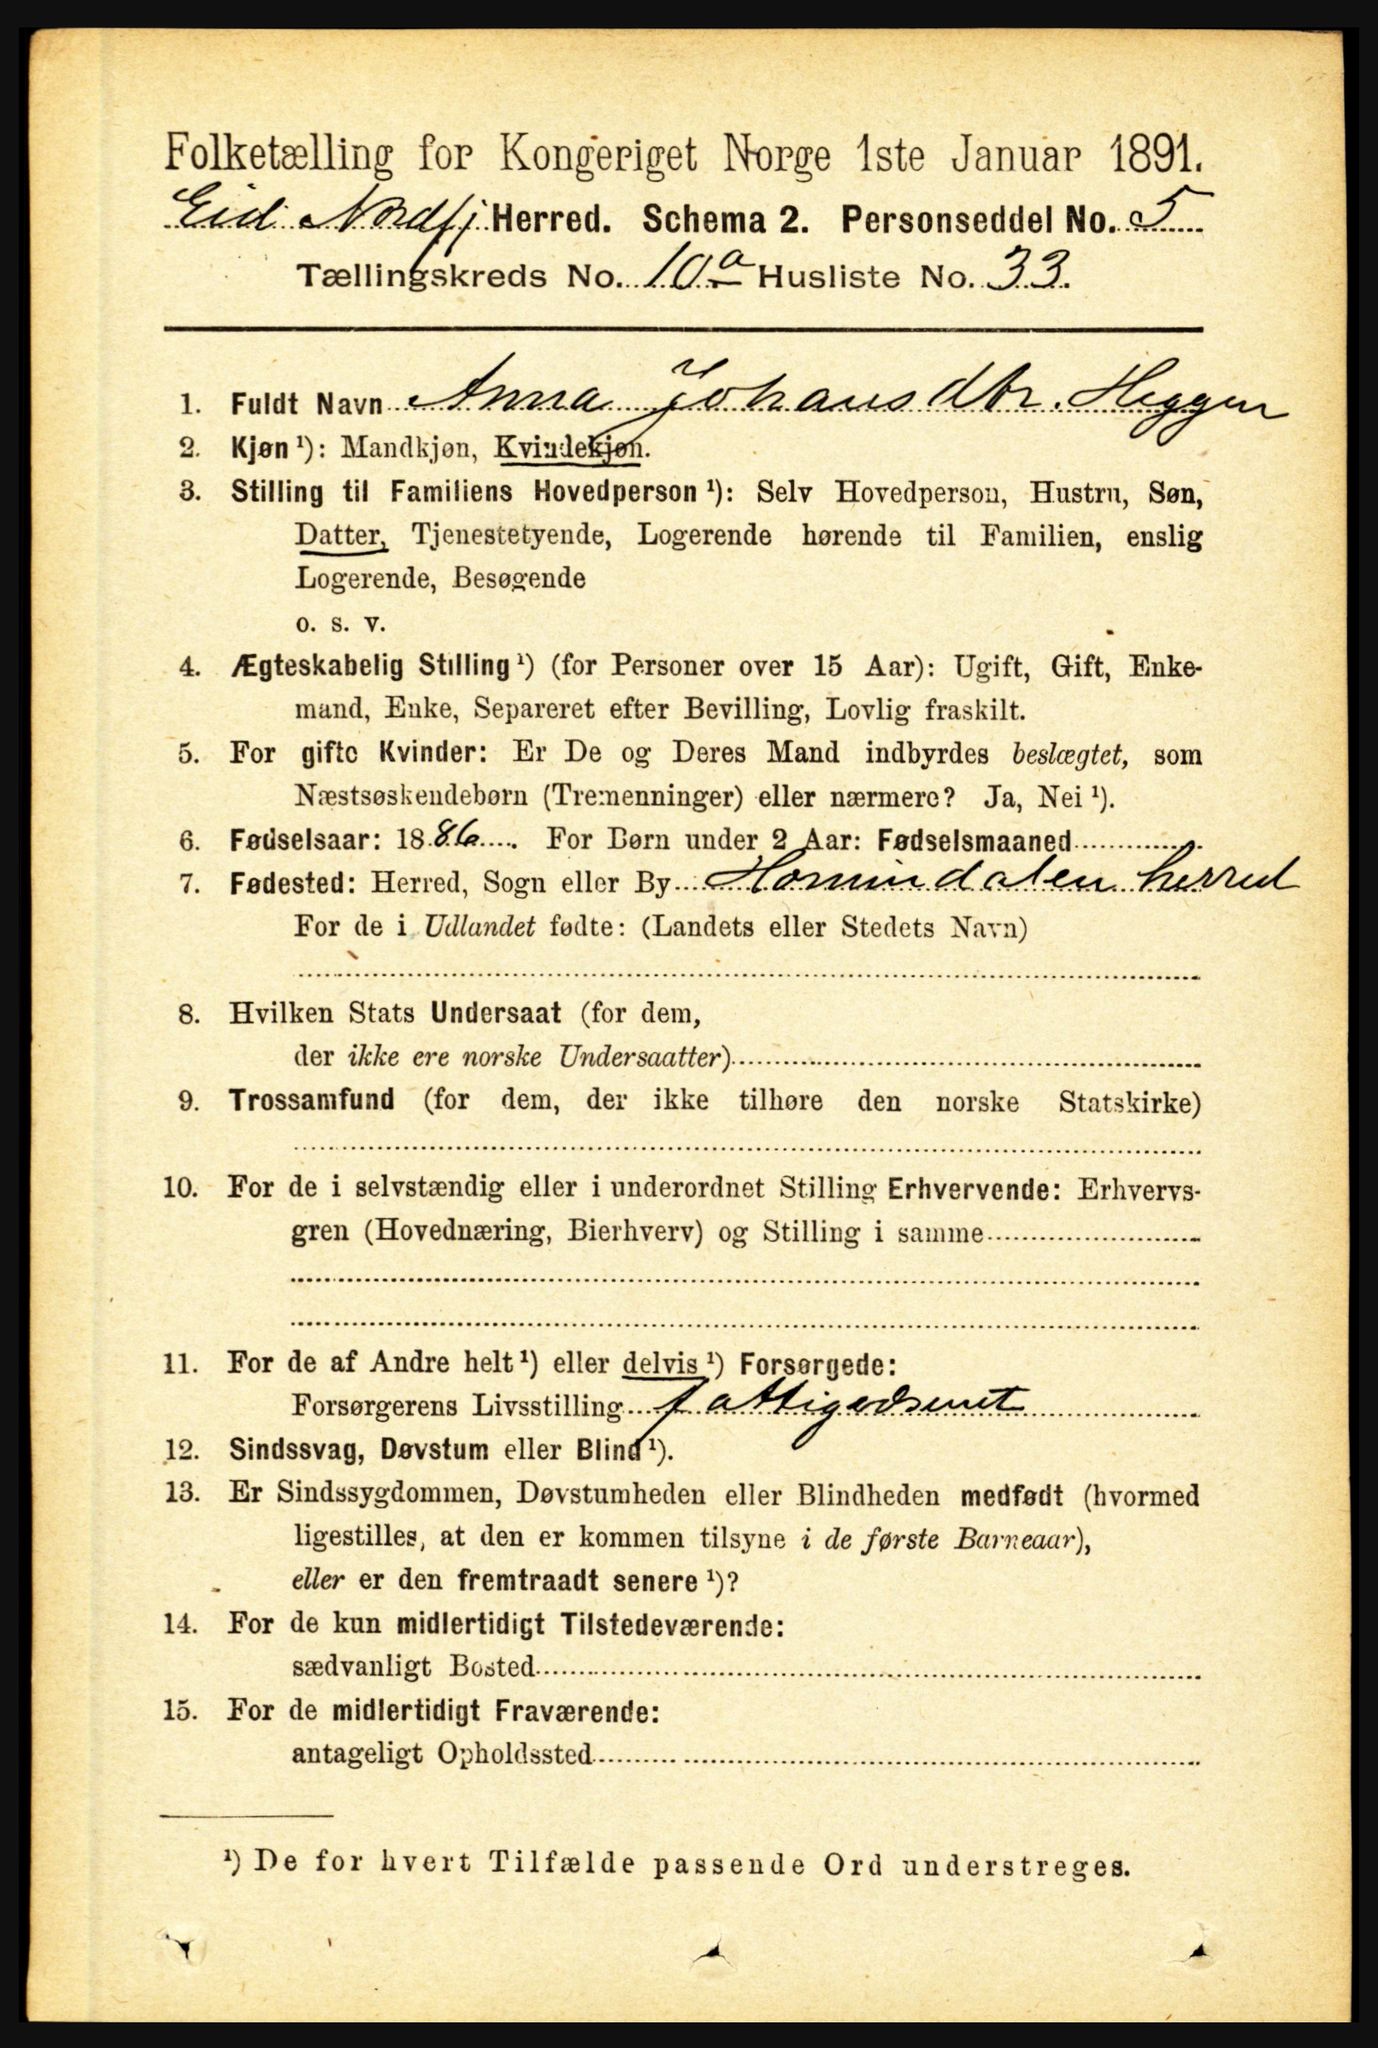 Folketælling for Kongeriget Norge 1ste Januar 1891.
Eid Nordfj Herred. Schema 2. Personseddel No. 5
Tællingskreds No. 10a Husliste No. 33.
1. Fuldt Navn Anna Johansdtr. Heggen
2. Kjøn ¹): Mandkjøn, Kvindekjøn.
3. Stilling til Familiens Hovedperson ¹): Selv Hovedperson, Hustru, Søn,
Datter, Tjenestetyende, Logerende hørende til Familien, enslig
Logerende, Besøgende
o. s. v.
4. Ægteskabelig Stilling ¹) (for Personer over 15 Aar): Ugift, Gift, Enke-
mand, Enke, Separeret efter Bevilling, Lovlig fraskilt.
5. For gifte Kvinder: Er De og Deres Mand indbyrdes beslægtet, som
Næstsøskendebørn (Tremenninger) eller nærmere? Ja, Nei ¹).
6. Fødselsaar: 1886. For Børn under 2 Aar: Fødselsmaaned
7. Fødested: Herred, Sogn eller By Hornindalen herred
For de i Udlandet fødte: (Landets eller Stedets Navn)
8. Hvilken Stats Undersaat (for dem,
der ikke ere norske Undersaatter)
9. Trossamfund (for dem, der ikke tilhøre den norske Statskirke)
10. For de i selvstændig eller i underordnet Stilling Erhvervende: Erhvervs-
gren (Hovednæring, Bierhverv) og Stilling i samme
11. For de af Andre helt ¹) eller delvis ¹) Forsørgede:
Forsørgerens Livsstilling fattigvæsenet
12. Sindssvag, Døvstum eller Blind ¹).
13. Er Sindssygdommen, Døvstumheden eller Blindheden medfødt (hvormed
ligestilles, at den er kommen tilsyne i de første Barneaar),
eller er den fremtraadt senere ¹)?
14. For de kun midlertidigt Tilstedeværende:
sædvanligt Bosted
15. For de midlertidigt Fraværende:
antageligt Opholdssted
¹) De for hvert Tilfælde passende Ord understreges.